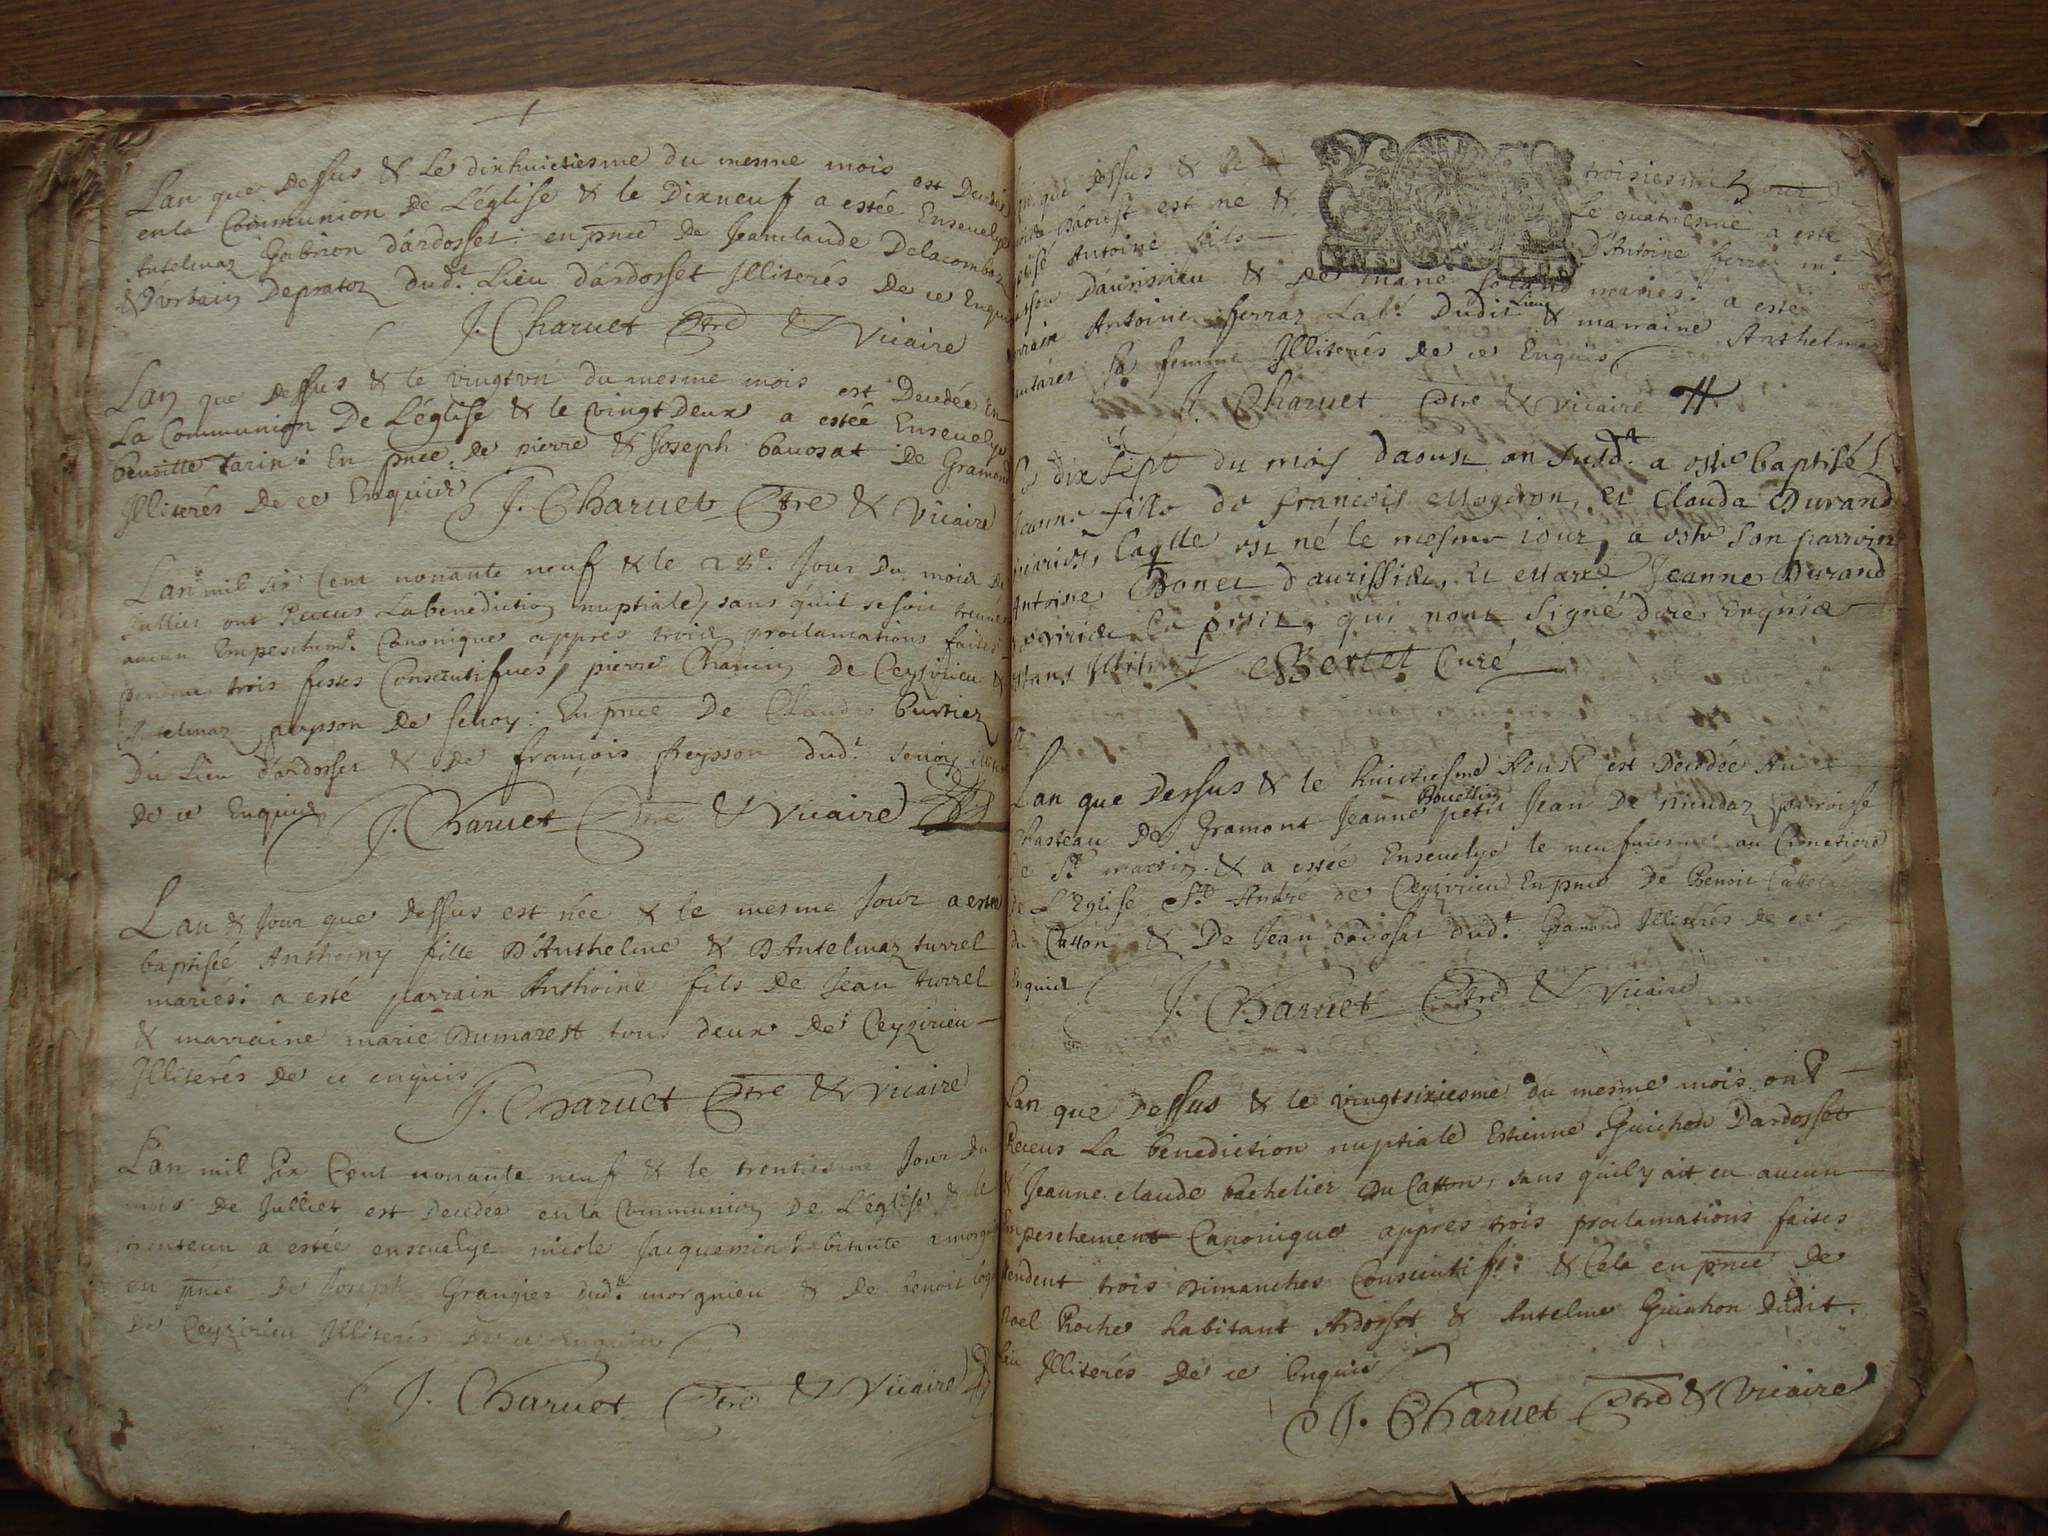 Lan que dessus & le dixhuictiesme du mesme mois est Decedée
en la Communion de L'église & le Dixneuf a estée Enseuelye
Antelmaz Gabrion d'ardosset: en pnce de Jeanclaude Delacombaz
& Vrbain Depratoz dud.t Lieu d'ardosset Illiterés de ce Enquis
J. Charuet Ptre & Vicaire
Lan que dessus & le vingtvn du mesme mois est Decedée En
La Communion De L'église & le vingtdeux a estée Enseuelye
benoitte tarin: En pnce de pierre & Joseph bauosat de Gramond
Illiterés de ce Enquis J. Charuet Ptre & Vicaire
Lan mil six Cent nonante neuf & le 28e. Jour Du mois de
Jullier ont Receus La benediction nuptiale, sans quil se soit trouué
aucun Empeschem.t Canonique appres trois proclamations faites
pendent trois festes Consecutifues, pierre Chanin de Ceyzirieu &
Antelmaz peysson de senoy: En pnce De Claude burtiez
Du Lieu d'ardosset & de françois Peysson dud.t senoy
De ce Enquis J. Charuet Ptre & Vicaire
Lan & Jour que dessus est née & le mesme Jour a esté
baptisée Antheiny fille D'Anthelme & D'Antelmaz turrel
mariés: a esté parrain Anthoine fils de Jean turrel
& marraine marie Dumarest tous deux De Ceyzirieu
Illiterés de ce enquis J. Charuet Ptre & Vicaire
Lan mil six Cent nonante neuf & le trentiesme Jour du
mois de Jullier est Decedée en la Communion De L'église & le
trenteun a estée enseuelye nicole Jacquemin habitante a morgnieu
en pnce De Joseph Grangier dud.t morgnieu & de benoit
de Ceyzirieu Illiterés De ce Enquis
J. Charuet Ptre & Vicaire
Lan que dessus & le troisiesme Jour
d'Aoust est né & Le quatriesme a esté
baptisé Antoine fils D'Antoine ferraz
d'aurissieu & de marie mariés: a esté
parrain Antoine ferraz Lab.r Dudit Lieu & marraine Anthelmaz
sa femme Illiterés de ce Enquis
J. Charuet Ptre & Vicaire
Le dix sept du mois daoust an susd.t a esté baptisée
Jeanne fille de francois Mogeron, et Clauda Durand
mariés, laqlle est né le mesme iour, a esté son parroin
Antoine Bonet daurissieu, et Marie Jeanne Durand
qui nont signé dice Enquis
estans Illit. Bertet Curé
Lan que Dessus & le huictiesme Aoust est Decedée Au
chasteau de Gramont Jeanne Bouellin petit Jean De nieudaz parroisse
de St. martin. & a estée Enseuelye le neufuiesme au Cimetiere
de L'Eglise St. André de Ceyzirieu En pnce De Benoit
du Catton & De Jean bauosat dud.t Gramond Illiterés de ce
Enquis J. Charuet Ptre & Vicaire
Lan que Dessus & le vingtsixiesme du mesme mois ont
Receus La benediction nuptiale Estienne Guichon Dardosset
& Jeanne claude bachelier Du Catton, sans quil y ait eu aucun
Empeschement Canonique appres trois proclamations faites
pendent trois Dimanches Consecutifs: & Cela en pnce De
Noel Roche habitant Ardosset & Antelme Guichon dudit.
Lieu Illiterés de ce Enquis
J. Charuet Ptre & Vicaire